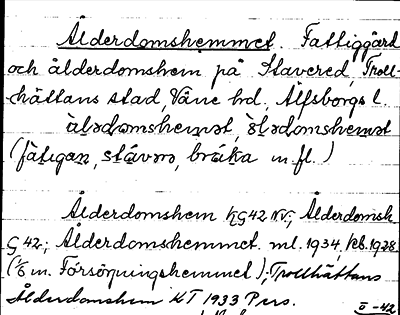 Ålderdomshemmet. Fattiggård
och ålderdomshem på Stavered, Troll-
hättans stad, Väne hd., Älfsborgs l.
(fàtigan, stávərə, bráka m. fl.)
Ålderdomshem KG42 NV; Ålderdomsh
G 42; Ålderdomshemmet. ml. 1934, Kb. 1928
(1/6 m. Försörjningshemmet); Trollhättans
Ålderdomshem KT 1933 Pers.
II -42